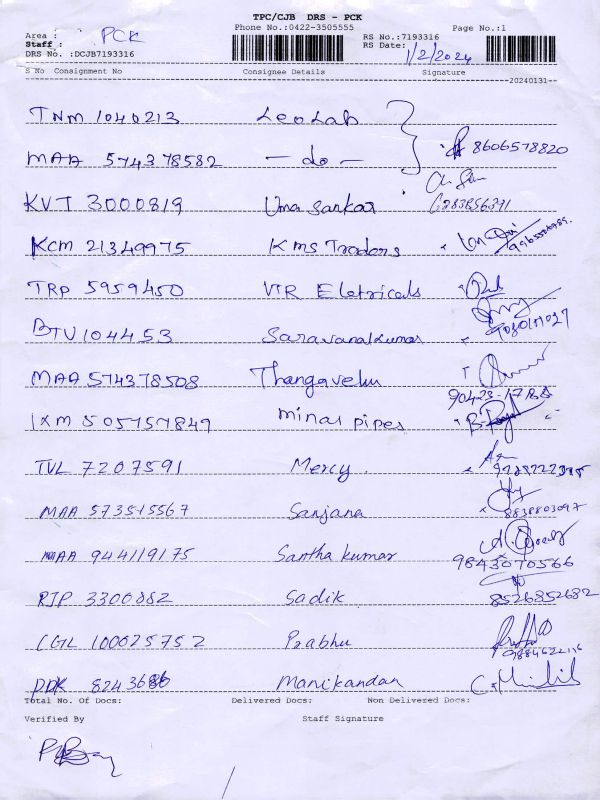 TPC/CJB DRS - PCK
Phone No.:0422-3505555 Page No.:1
Area : PCK RS No.:7193316
Staff : RS Date: 1/2/2024
DRS No. :DCJB7193316
S No Consignment No Consignee Details Signature
20240131
TNM 1040213 LeoLab
MAA 574378582 - do - 8606578820
KVT 3000819 Uma Sankar 6283856391
KCM 21349975 Kms Traders
TRP 5959450 VTR Eletricals
BTU 104453 Saravanakumar
MAA 574378508 Thangavelu
IXM 505757849 minar pipes
TVL 7207591 Mercy.
MAA 573515567 Sanjana 8838803097
MAA 944119175 Santha kumar 9843070566
RJP 3300882 Sadik 8526852682
CGL 100025752 Prabhu
PDK 8243686 Manikandan
Total No. Of Docs: Delivered Docs: Non Delivered Docs:
Verified By Staff Signature